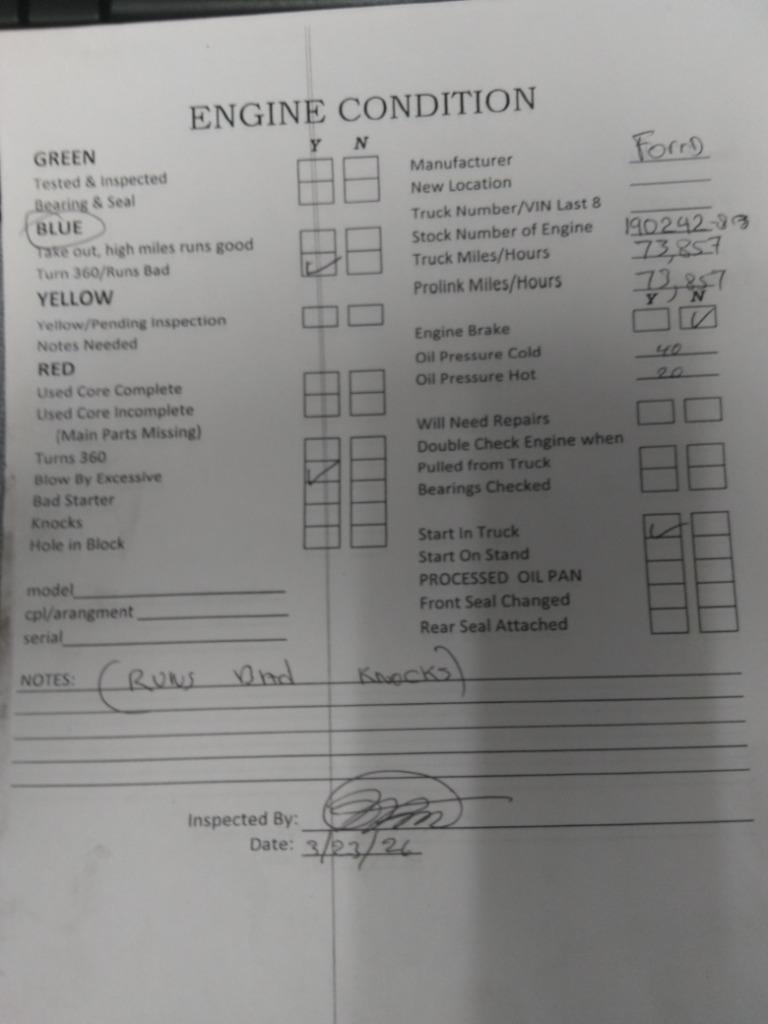 ENGINE CONDITION
Y N
GREEN
Tested & Inspected
Bearing & Seal
BLUE
Take out, high miles runs good
Turn 360/Runs Bad
YELLOW
Yellow/Pending Inspection
Notes Needed
RED
Used Core Complete
Used Core Incomplete
(Main Parts Missing)
Turns 360
Blow By Excessive
Bad Starter
Knocks
Hole in Block
model
cpl/arangment
serial
Manufacturer Ford
New Location
Truck Number/VIN Last 8
Stock Number of Engine 190242-83
Truck Miles/Hours 73,857
Prolink Miles/Hours 73,857
Y N
Engine Brake
Oil Pressure Cold 40
Oil Pressure Hot 20
Will Need Repairs
Double Check Engine when
Pulled from Truck
Bearings Checked
Start In Truck
Start On Stand
PROCESSED OIL PAN
Front Seal Changed
Rear Seal Attached
NOTES: (RUNS Bad Knocks)
Inspected By:
Date: 3/23/26